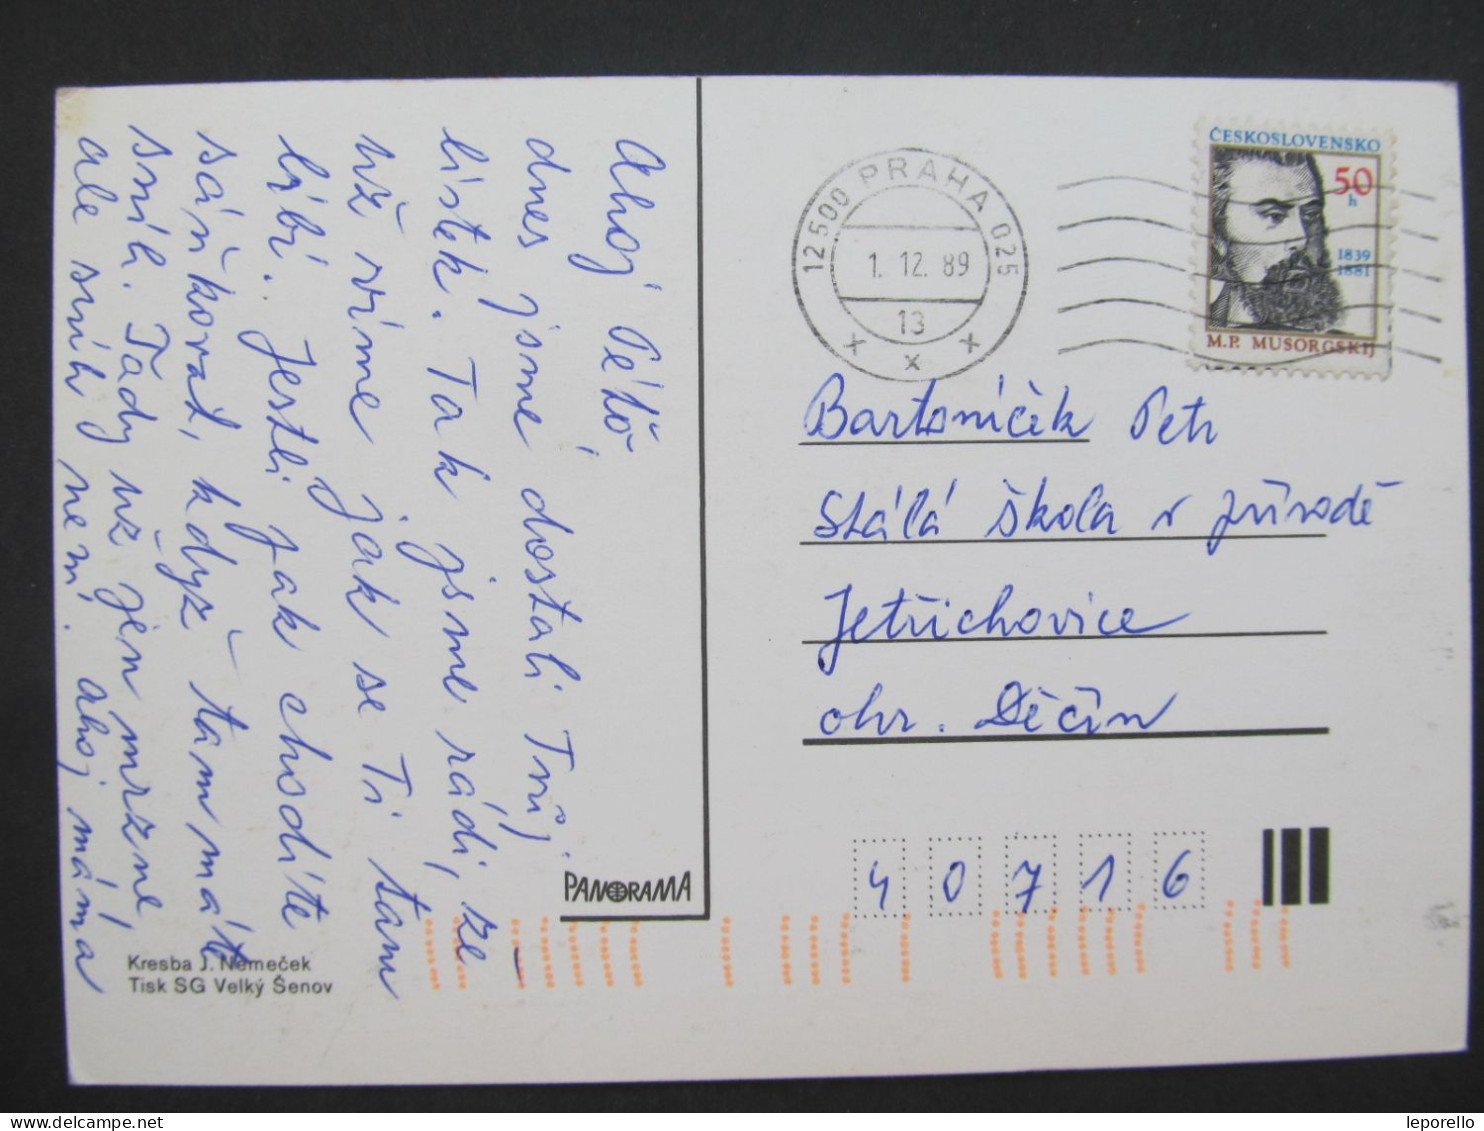 Ahoj Péťo
dnes jsme dostali Tvůj
lístek. Tak jsme rádi, že
už víme jak se Ti tam
líbí. Jestli jak chodíte
sáňkovat, když tam máte
sníh. Tady už jen mrzne,
ale sníh není. ahoj máma
PANORAMA
Kresba J. Nemeček
Tisk SG Velký Šenov
12500 PRAHA 025
1. 12. 89
13
x x x
ČESKOSLOVENSKO
50
h
1839
1881
M.P. MUSORGSKIJ
Bartoníček Petr
Stálá škola v přírodě
Jetřichovice
okr. Děčín
40716
leporello